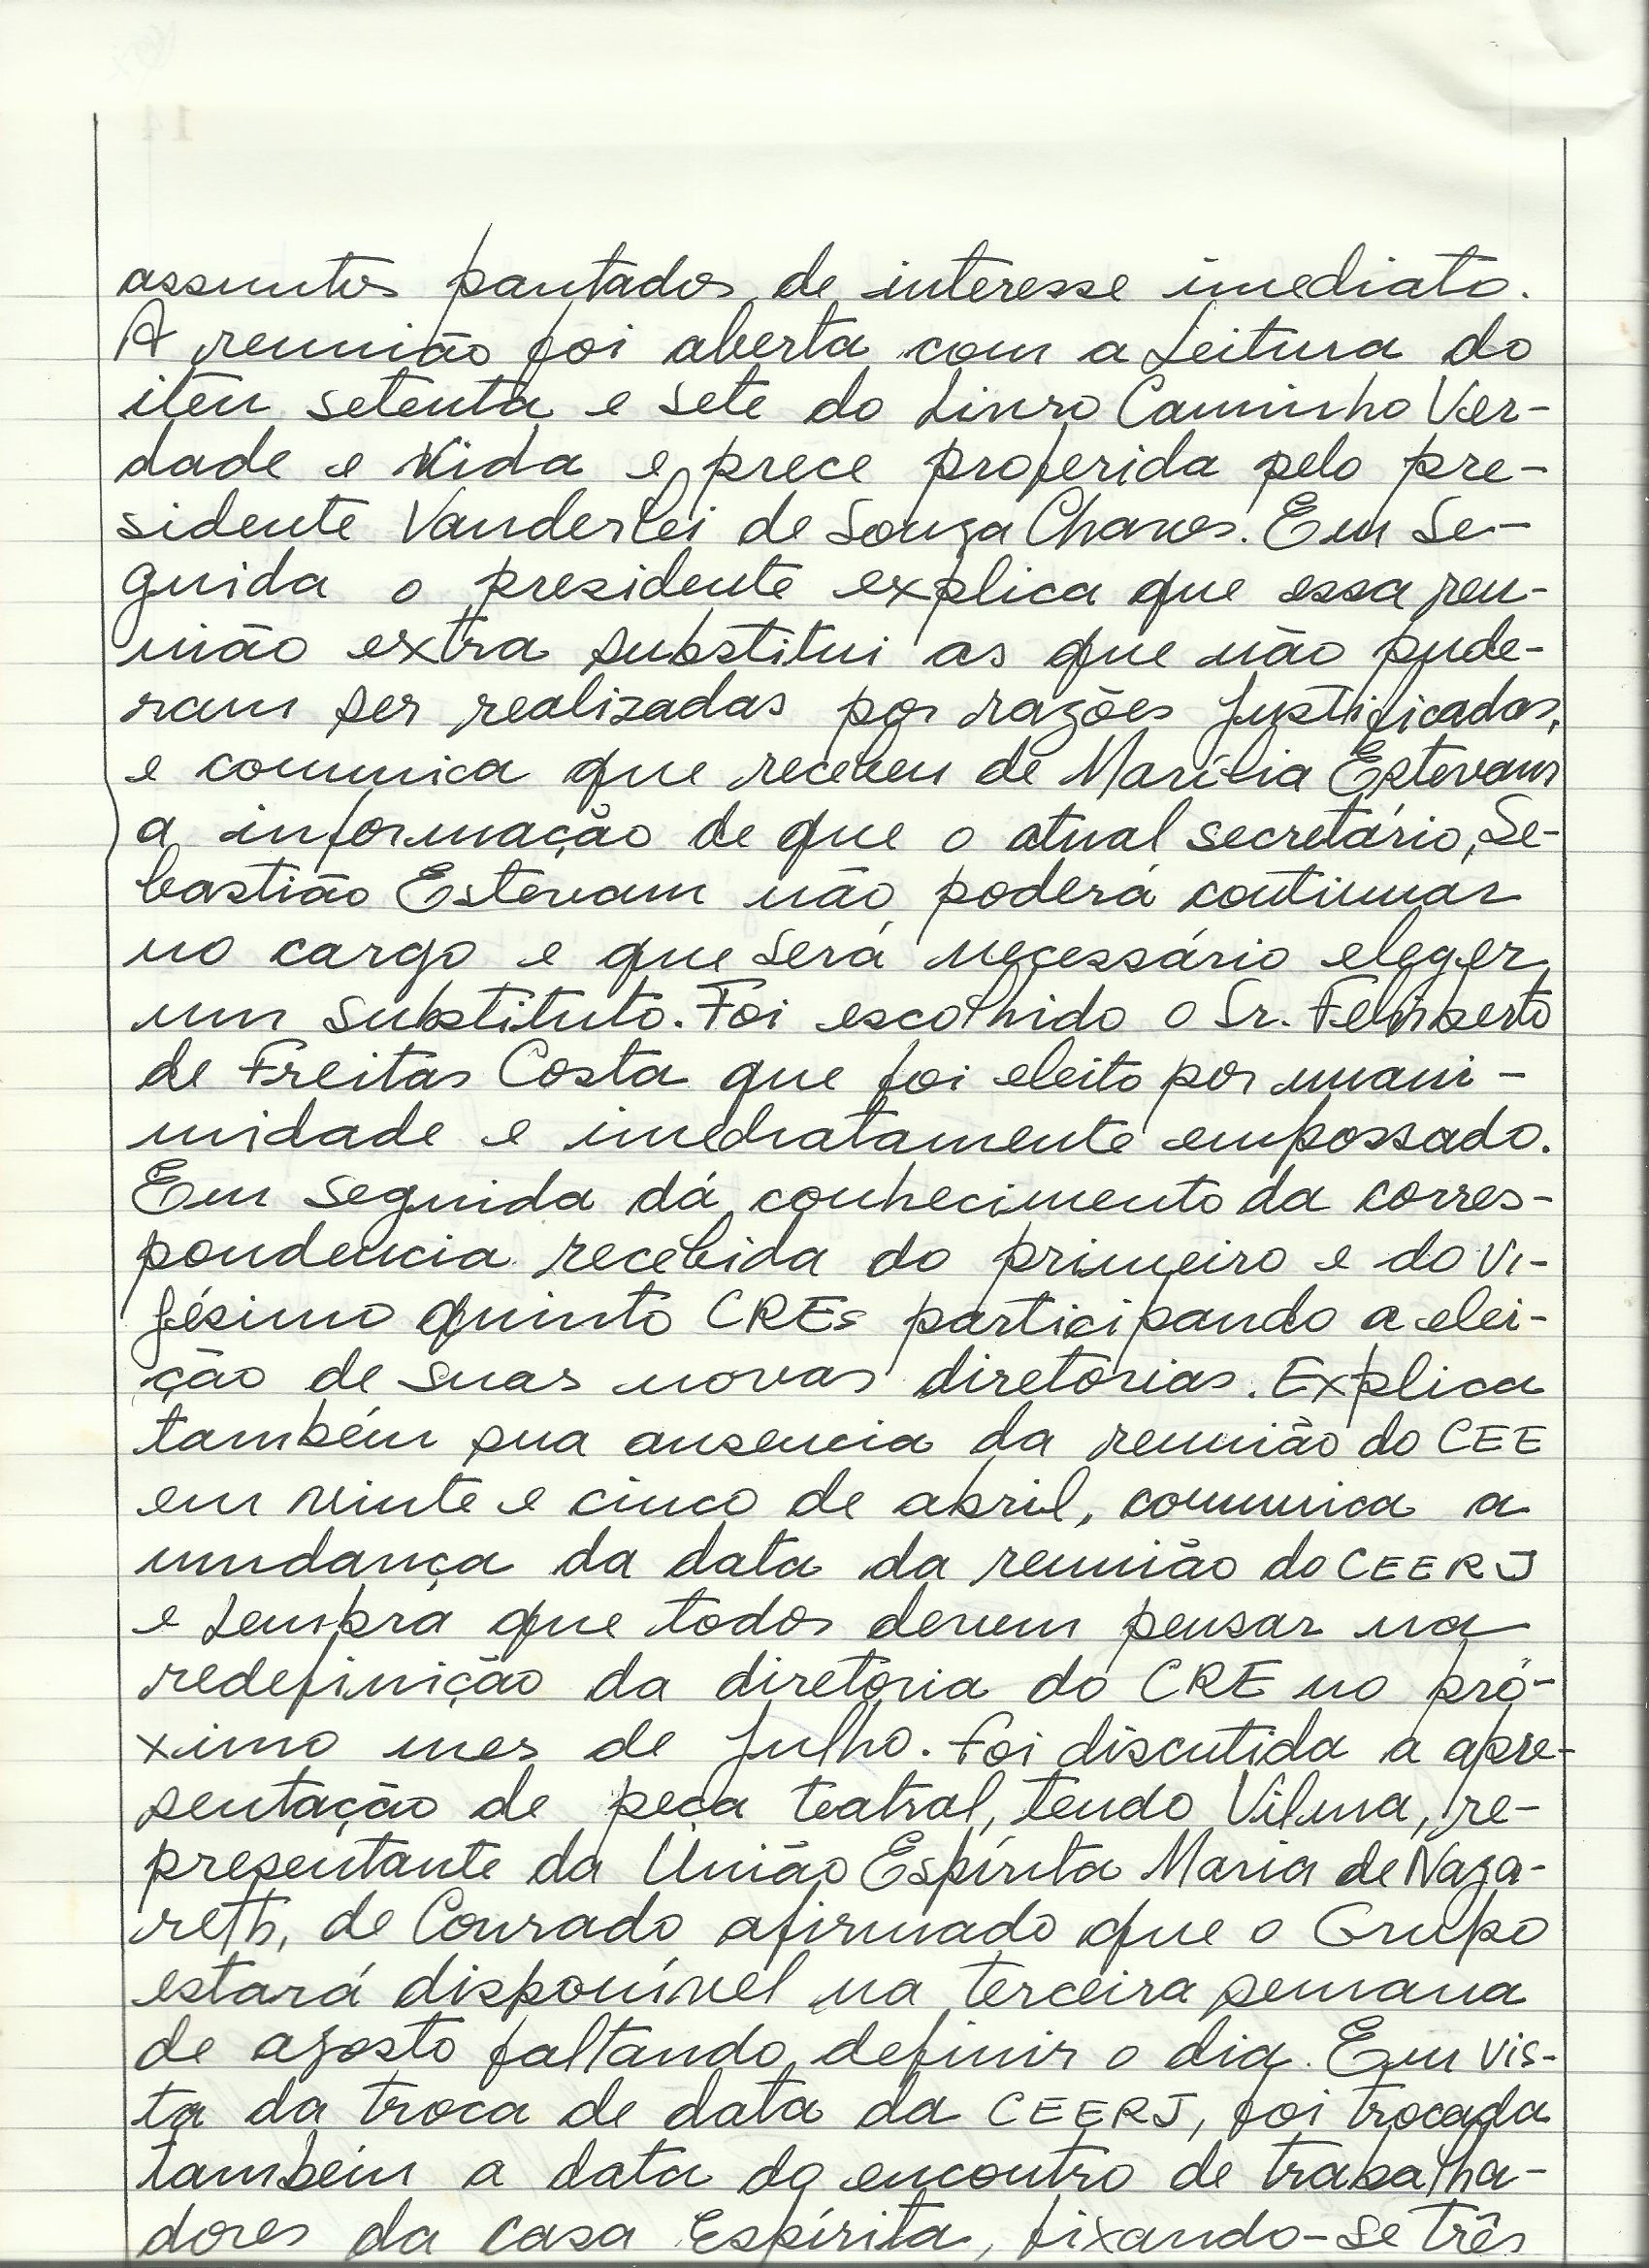 assuntos pautados de interesse imediato.
A reunião foi aberta com a Leitura do
iten setenta e sete do Livro Caminho Ver-
dade e Vida e prece proferida pelo pre-
sidente Vanderlei de Souza Chaves. Em Se-
guida o presidente explica que essa reu-
nião extra substitui as que não pude-
ram ser realizadas por razões justificadas,
e comunica que recebeu de Marília Estevam
a informação de que o atual secretário, Se-
bastião Estevam não poderá continuar
no cargo e que será necessário eleger
um substituto. Foi escolhido o Sr. Felisberto
de Freitas Costa que foi eleito por unani-
midade e imediatamente empossado.
Em seguida dá conhecimento da corres-
pondencia recebida do primeiro e do vi-
gésimo quinto CREs participando a elei-
ção de suas novas diretorias. Explica
também sua ausencia da reunião do CEE
em vinte e cinco de abril, comunica a
mudança da data da reunião do CEERJ
e Lembra que todos devem pensar na
redefinição da diretoria do CRE no pró-
ximo mes de Julho. Foi discutida a apre-
sentação de peça teatral, tendo Vilma, re-
presentante da União Espírita Maria de Naza-
reth, de Conrado afirmado que o Grupo
estará disponível na terceira semana
de agosto faltando definir o dia. Em vis-
ta da troca de data da CEERJ, foi trocada
também a data do encontro de trabalha-
dores da casa Espírita, fixando-se três